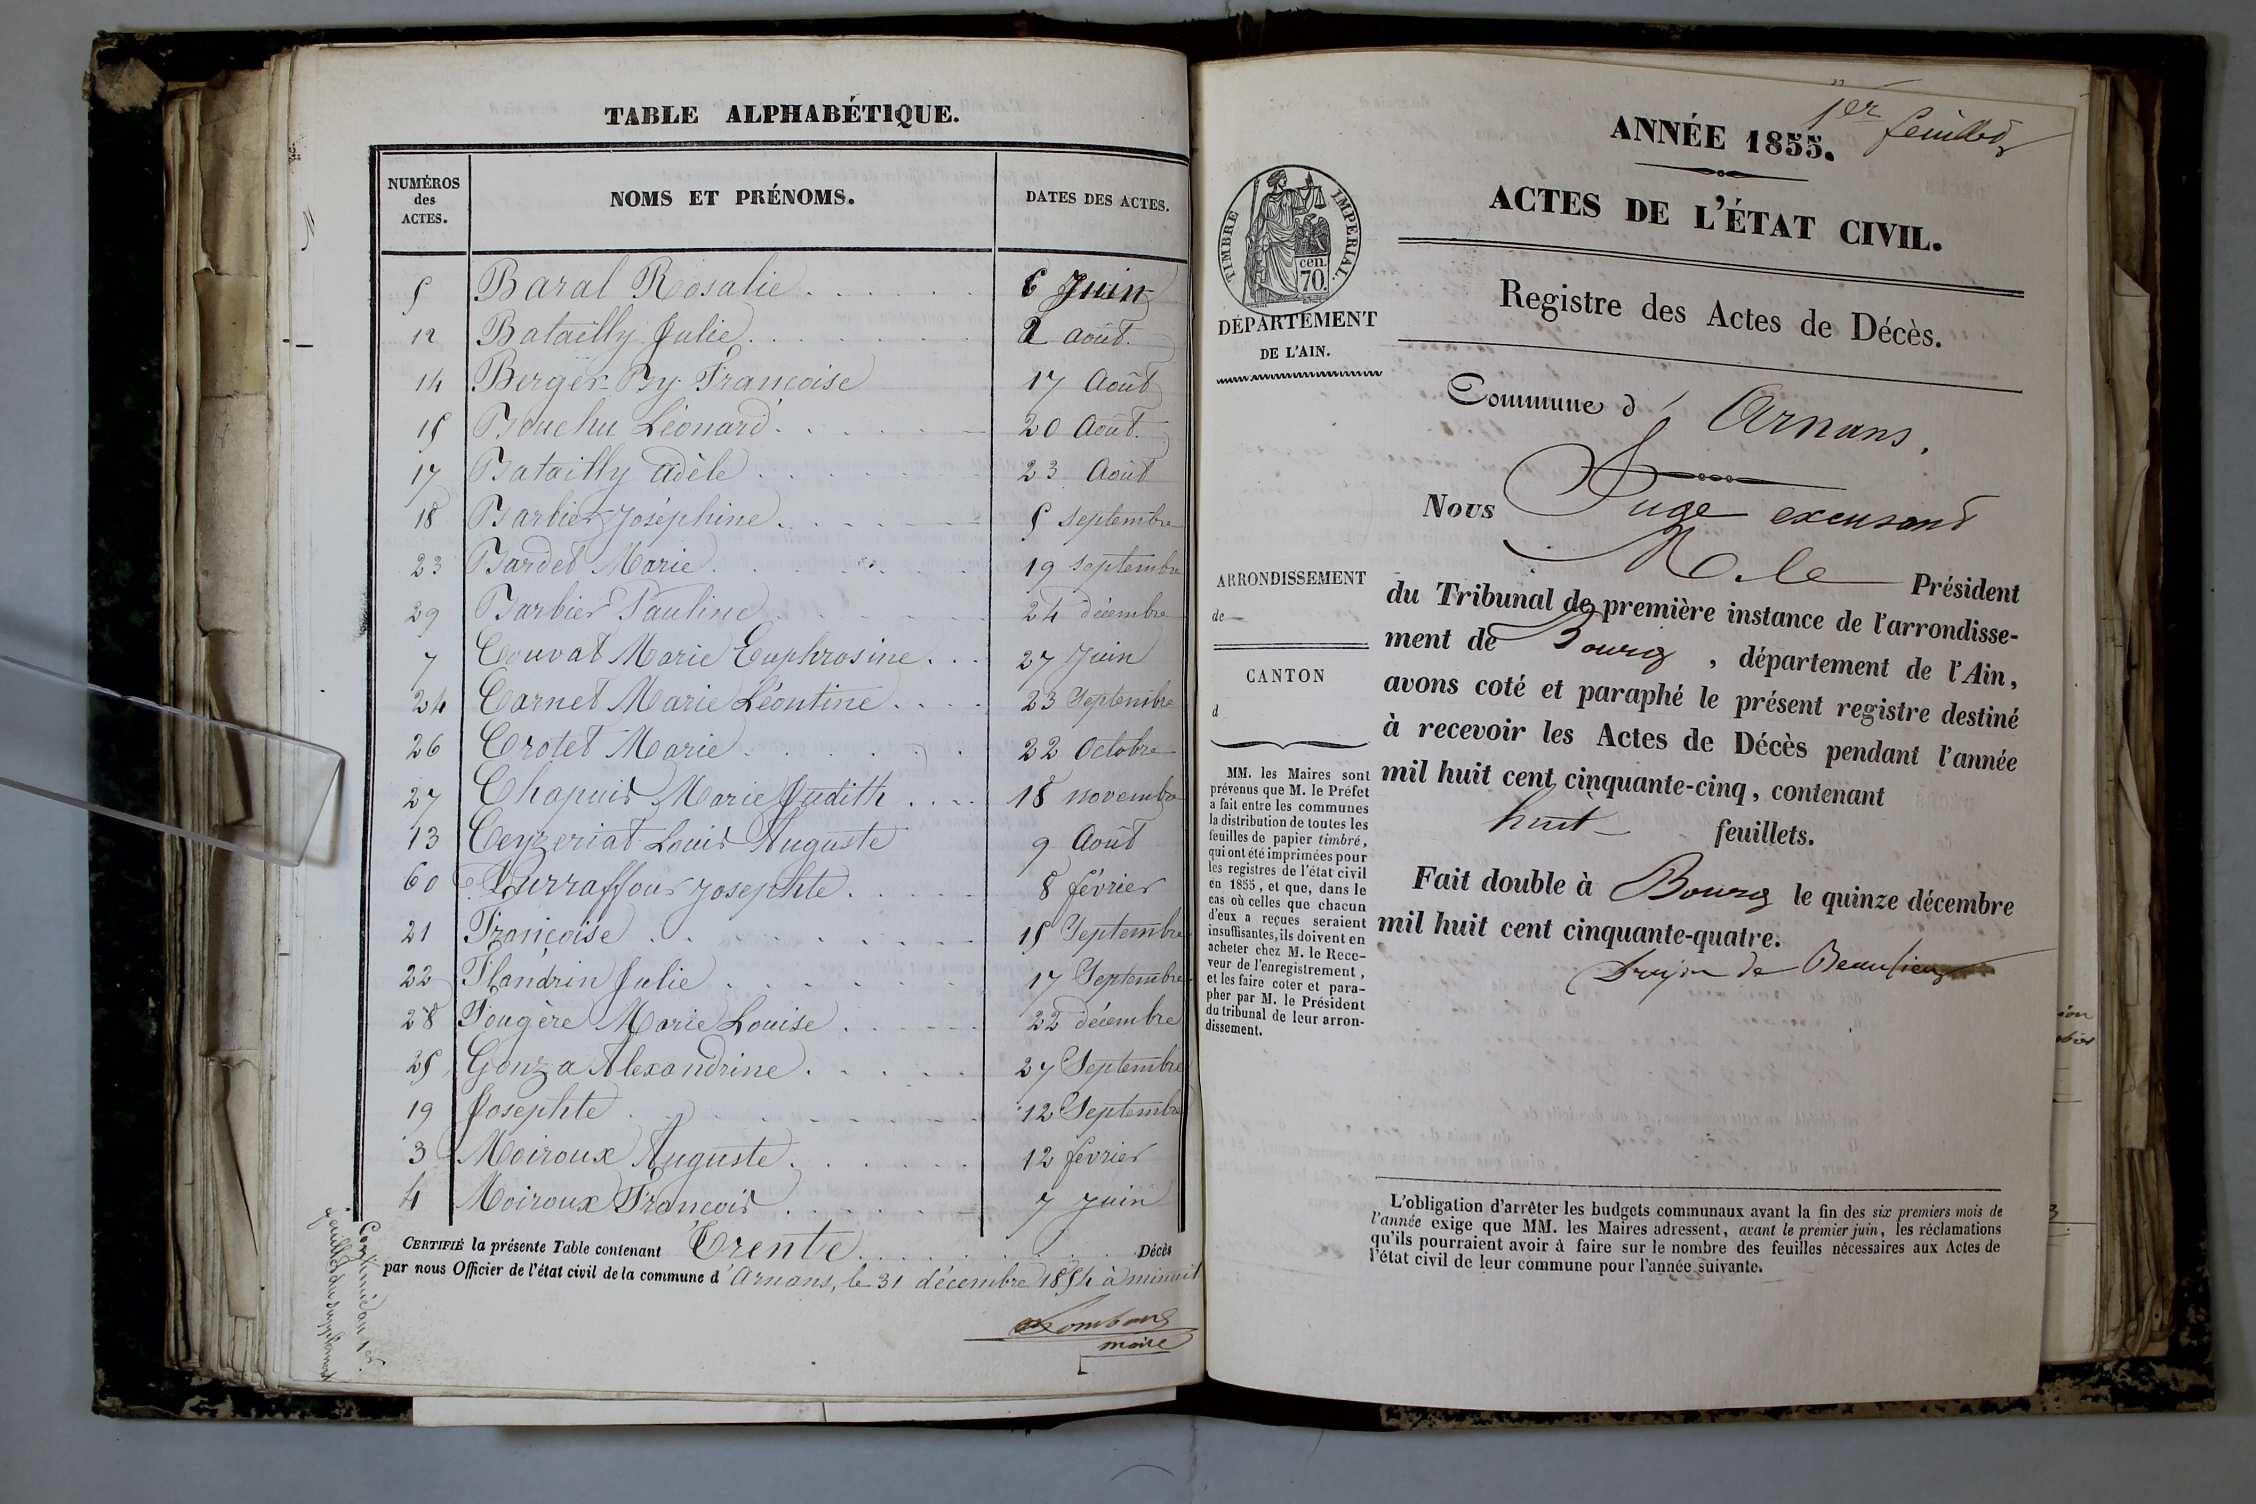 TABLE ALPHABÉTIQUE.
NUMÉROS des ACTES. NOMS ET PRÉNOMS. DATES DES ACTES.
5 Baral Rosalie 6 Juin
12 Batailly Julie 2 août
14 Berger-By Françoise 17 Août
15 Bouchu Léonard 20 Août
17 Batailly Adèle 23 Août
18 Barbier Joséphine 5 septembre
23 Bardet Marie 19 septembre
29 Barbier Pauline 24 décembre
7 Couvat Marie Euphrosine 27 Juin
24 Carnet Marie Léontine 23 Septembre
26 Crotet Marie 22 Octobre
27 Chapuis Marie Judith 18 novembre
13 Ceyzeriat Louis Auguste 9 Août
60 Durraffour Josephte 8 février
21 Françoise 15 Septembre
22 Flandrin Julie 17 Septembre
28 Fougère Marie Louise 22 décembre
25 Gonza Alexandrine 27 Septembre
19 Josephte 12 Septembre
3 Moiroux Auguste 12 février
4 Moiroux François 7 Juin
CERTIFIÉ la présente Table contenant Trente Décès
par nous Officier de l'état civil de la commune d'Arnans, le 31 décembre 1854 à minuit
Lombard
maire
Continué au 1er
feuillet du supplément
1er feuillet
ANNÉE 1855.
ACTES DE L'ÉTAT CIVIL.
Registre des Actes de Décès.
TIMBRE IMPÉRIAL.
cen.
70.
DÉPARTEMENT
DE L'AIN.
Commune d'Arnans.
Nous Juge excusant
M. le Président
du Tribunal de première instance de l'arrondisse-
ment de Bourg, département de l'Ain,
avons coté et paraphé le présent registre destiné
à recevoir les Actes de Décès pendant l'année
mil huit cent cinquante-cinq, contenant
huit feuillets.
Fait double à Bourg le quinze décembre
mil huit cent cinquante-quatre.
de Beaulieu
ARRONDISSEMENT
de
CANTON
d
MM. les Maires sont
prévenus que M. le Préfet
a fait entre les communes
la distribution de toutes les
feuilles de papier timbré,
qui ont été imprimées pour
les registres de l'état civil
en 1855, et que, dans le
cas où celles que chacun
d'eux a reçues seraient
insuffisantes, ils doivent en
acheter chez M. le Rece-
veur de l'enregistrement,
et les faire coter et para-
pher par M. le Président
du tribunal de leur arron-
dissement.
L'obligation d'arrêter les budgets communaux avant la fin des six premiers mois de
l'année exige que MM. les Maires adressent, avant le premier juin, les réclamations
qu'ils pourraient avoir à faire sur le nombre des feuilles nécessaires aux Actes de
l'état civil de leur commune pour l'année suivante.